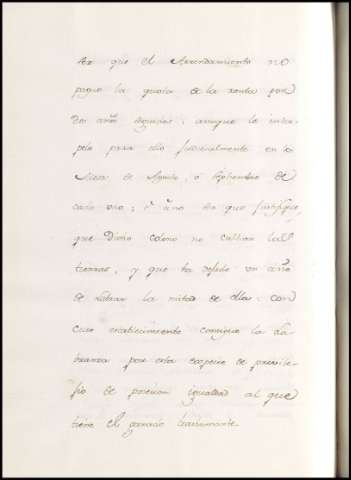 que el Arrendamiento no
pague la quota de la renta por
dos años seguidos: aunque le inter-
pele para ello judicialmente en los
de Agosto, ó Septiembre de
cada uno; ó uno en que justifique
que Dicho colono no cultiva las
tierras, y que ha dejado un año
de labrar la mitad de ellas: con
cuio establecimiento consigue la la-
branza por esta especie de privile-
gio de posesion igualdad al que
tiene el ganado trasumante.